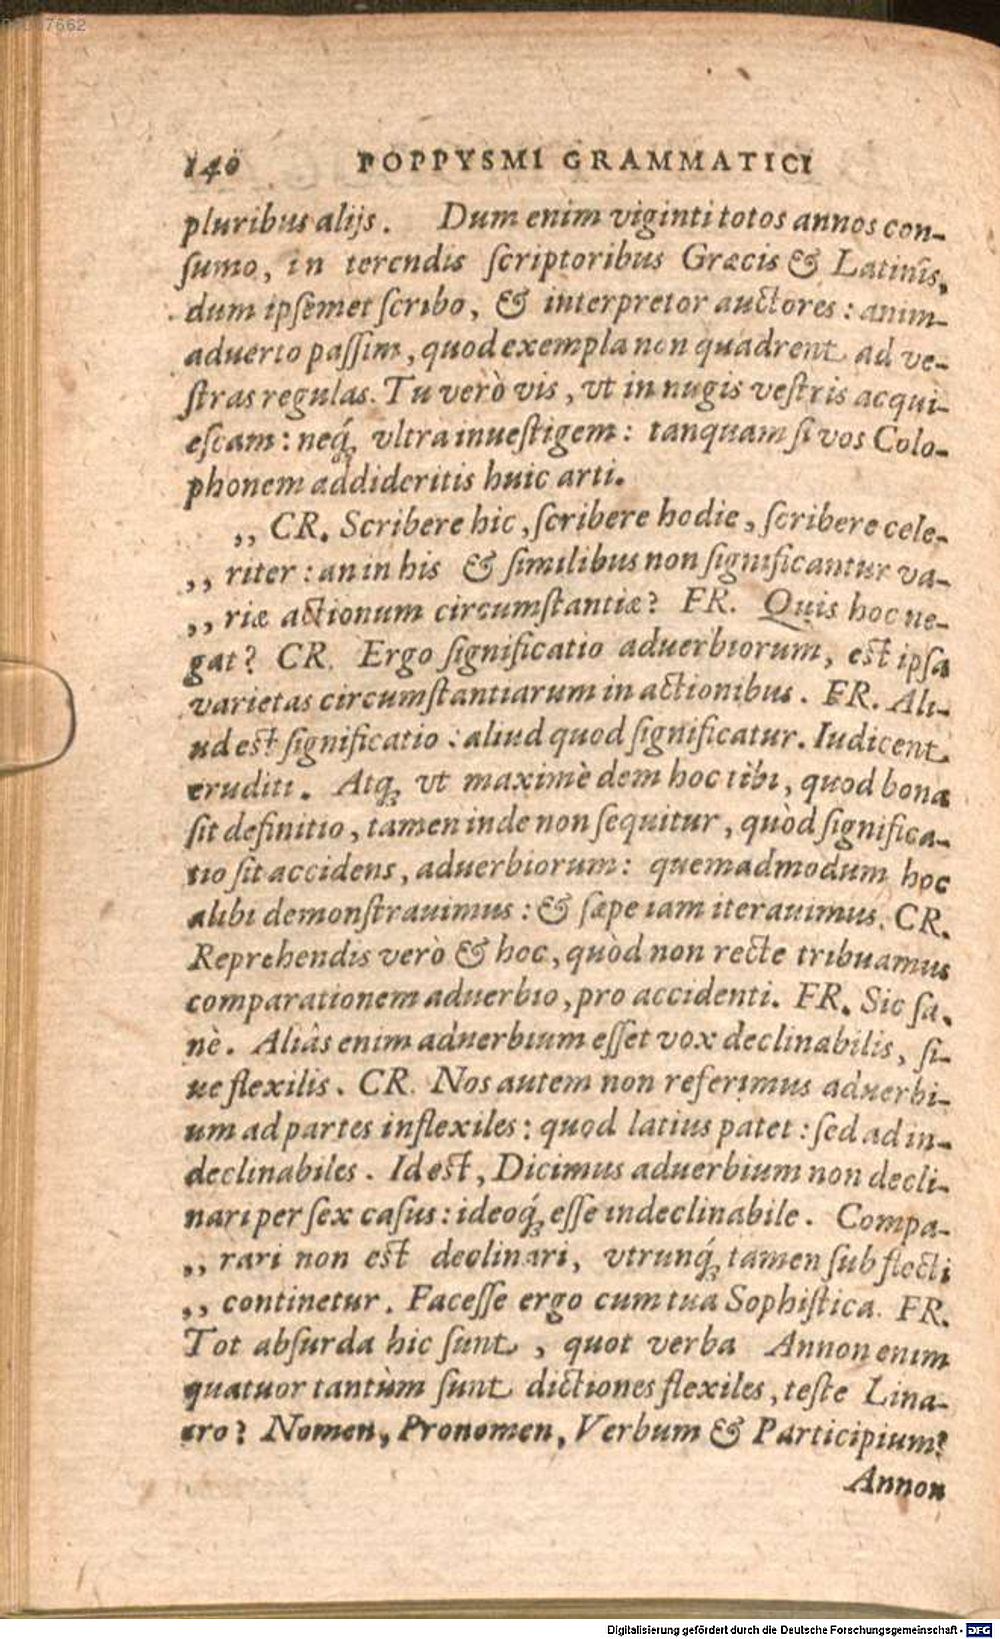 140 POPPYSMI GRAMMATICI
pluribus alijs. Dum enim viginti totos annos con-
sumo, in terendis scriptoribus Græcis & Latinis,
dum ipsemet scribo, & interpretor auctores: anim-
aduerto passim, quod exempla non quadrent ad ve-
stras regulas. Tu verò vis, vt in nugis vestris acqui-
escam: neq́; vltra inuestigem: tanquam si vos Colo-
phonem addideritis huic arti.
,, CR. Scribere hic, scribere hodie, scribere cele-
,, riter: an in his & similibus non significantur va-
,, riæ actionum circumstantiæ? FR. Quis hoc ne-
gat? CR. Ergo significatio aduerbiorum, est ipsa
varietas circumstantiarum in actionibus. FR. Ali-
ud est significatio: aliud quod significatur. Iudicent
eruditi. Atq; vt maximè dem hoc tibi, quod bona
sit definitio, tamen inde non sequitur, quòd significa-
tio sit accidens, aduerbiorum: quemadmodum hoc
alibi demonstrauimus: & sæpe iam iterauimus. CR.
Reprehendis verò & hoc, quòd non recte tribuamus
comparationem aduerbio, pro accidenti. FR. Sic sa-
nè. Aliâs enim aduerbium esset vox declinabilis, si-
ue flexilis. CR. Nos autem non referimus aduerbi-
um ad partes inflexiles: quod latius patet: sed ad in-
declinabiles. Id est, Dicimus aduerbium non decli-
nari per sex casus: ideoq́; esse indeclinabile. Compa-
,, rari non est declinari, vtrunq́; tamen sub flecti
,, continetur. Facesse ergo cum tua Sophistica. FR.
Tot absurda hic sunt, quot verba Annon enim
quatuor tantùm sunt dictiones flexiles, teste Lina-
cro? Nomen, Pronomen, Verbum & Participium?
Annon
Digitalisierung gefördert durch die Deutsche Forschungsgemeinschaft - DFG